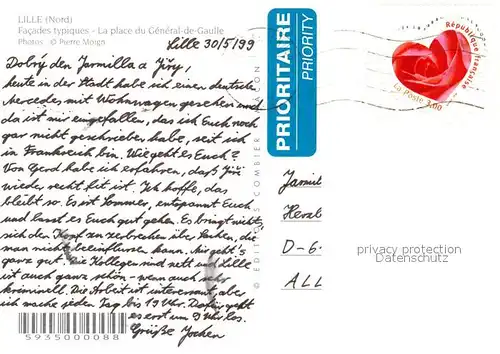 LILLE (Nord)
Façades typiques - La place du Général-de-Gaulle
Photos © Pierre Morgn
Lille 30/5/99
Dobrý den Jarmilla a Jiřy,
heute in der Stadt habe ich einen deutschen
Mercedes mit Wohnwagen gesehen und
da ist mir eingefallen, das ich Euch noch
gar nicht geschrieben habe, seit ich
in Frankreich bin. Wie geht es Euch?
Von Gerd habe ich erfahren, daß Jiři
wieder recht fit ist. Ich hoffe, das
bleibt so. Es ist Sommer, entspannt Euch
und lasst es Euch gut gehen. Es bringt nichts,
sich den Kopf zu zerbrechen über Sachen, die
man nicht beeinflusse kann. Mir geht's
ganz gut. Die Kollegen sind nett und Lille
ist auch ganz schön - wenn auch sehr
kriminell. Die Arbeit ist interessant, aber
ich mache jeden Tag bis 19 Uhr. Dafür geht
es erst um 9 Uhr los.
Grüße Jochen
5935000088
© EDITIONS COMBIER MÂCON
PRIORITAIRE
PRIORITY
République française
La Poste 3,00
Jarmil
Herab
D-6
ALL
privacy protection
Datenschutz